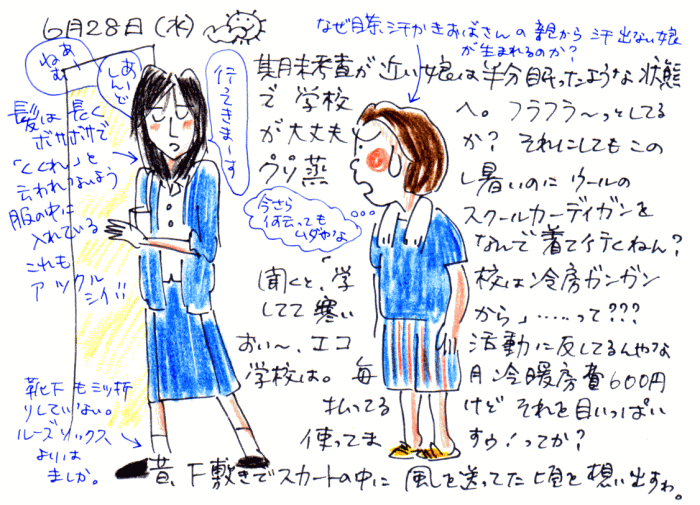 6月28日(水)
なぜ目茶汗かきおばさんの親から汗出ない娘
が生まれるのか?
あぁ
ねむ
あー
しんど
行ってきまーす
髪は長く
ボサボサで
「くくれ」と
云われないよう
服の中に
入れている
これも
アックル
シイ!!
靴下も三ツ折
りしていない。
ルーズソックス
よりは
ましか。
今さら
何云っても
ムダやな
期末考査が近い娘は半分眠ったような状態
で学校へ。フラフラ〜っとしてる
が大丈夫か?それにしてもこの
クソ蒸し暑いのにウールの
スクールカーディガンを
なんで着て行くねん?
聞くと、「学校は冷房ガンガン
してて寒いから」……って???
おい〜、エコ活動に反してるんやな
学校は。毎月冷暖房費600円
払ってるけどそれを目いっぱい
使ってますゥ!ってか?
昔、下敷きでスカートの中に風を送ってた頃を想い出すわ。